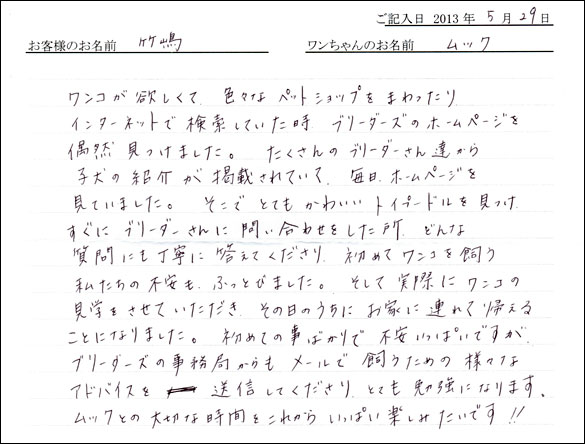 ご記入日 2013 年 5 月 29 日
お客様のお名前 竹嶋 ワンちゃんのお名前 ムック
ワンコが欲しくて、色々なペットショップをまわったり
インターネットで検索していた時、ブリーダーズのホームページを
偶然見つけました。 たくさんのブリーダーさん達から
子犬の紹介が掲載されていて、毎日、ホームページを
見ていました。 そこでとてもかわいいトイプードルを見つけ、
すぐにブリーダーさんに問い合わせをした所、どんな
質問にも丁寧に答えてくださり、初めてワンコを飼う
私たちの不安も、ふっとびました。 そして実際にワンコの
見学をさせていただき、その日のうちにお家に連れて帰える
ことになりました。 初めての事ばかりで不安いっぱいですが、
ブリーダーズの事務局からも、メールで飼うための様々な
アドバイスを 送信してくださり、とても勉強になります。
ムックとの大切な時間をこれからいっぱい楽しみたいです!!